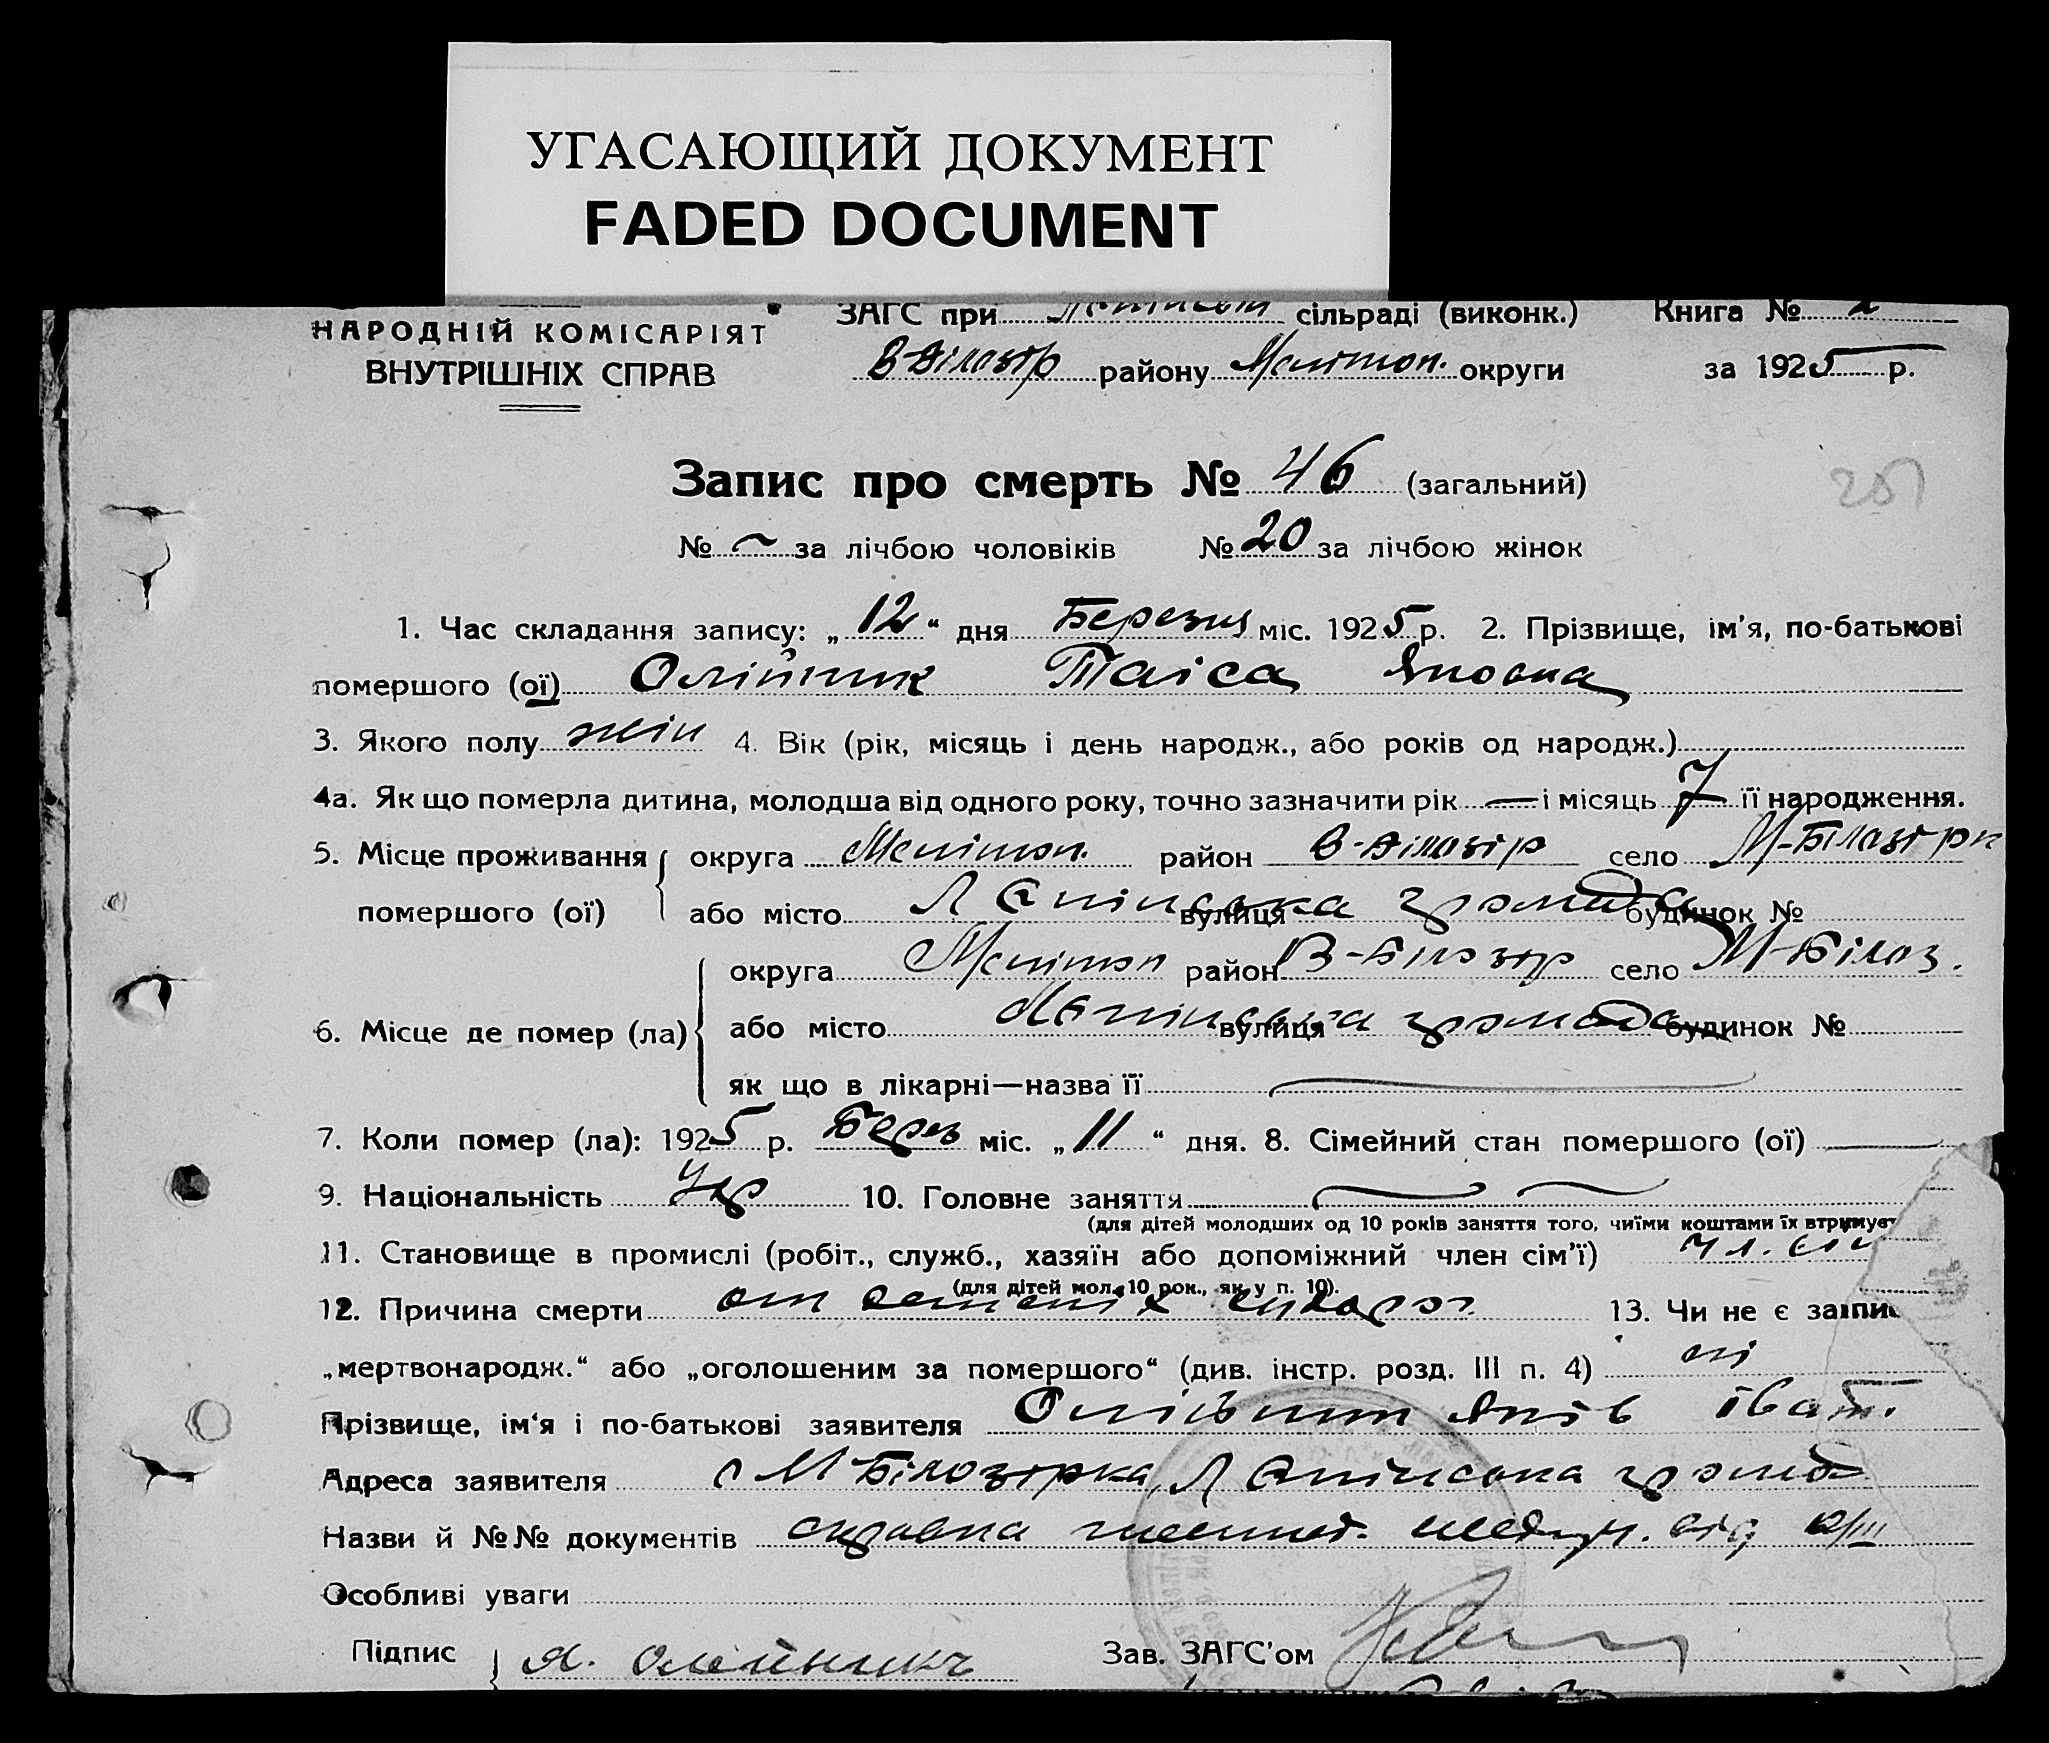 УГАСАЮЩИЙ ДОКУМЕНТ
FADED DOCUMENT
НАРОДНІЙ КОМІСАРІЯТ
ВНУТРІШНІХ СПРАВ
ЗАГС при сільраді (виконк.)
В-Білозір району Меліт​оп. округи
Книга № 2
за 1925 р.
Запис про смерть № 46 (загальний)
№ — за лічбою чоловіків № 20 за лічбою жінок
1. Час складання запису: „12“ дня Березня міс. 1925 р. 2. Прізвище, ім'я, по-батькові
помершого (ої) Олійник Таіса Яковна
3. Якого полу жін 4. Вік (рік, місяць і день народж., або років од народж.)
4а. Як що померла дитина, молодша від одного року, точно зазначити рік — і місяць 7 її народження.
5. Місце проживання помершого (ої) округа Мелітоп. район В-Білозір село М-Білазірк
або місто Лапінська громада вулиця будинок №
6. Місце де помер (ла) округа Мелітоп район В-Білозір село М-Білоз.
або місто Лапінська громада вулиця будинок №
як що в лікарні—назва її —
7. Коли помер (ла): 1925 р. Берез міс. „11“ дня. 8. Сімейний стан помершого (ої) —
9. Національність Укр 10. Головне заняття —
(для дітей молодших од 10 років заняття того, чиїми коштами їх втримує
11. Становище в промислі (робіт., служб., хазяїн або допоміжний член сім'ї) чл. сім
(для дітей мол. 10 рок., як у п. 10).
12. Причина смерти от 13. Чи не є запи
„мертвонародж.“ або „оголошеним за помершого“ (див. інстр. розд. III п. 4) ні
Прізвище, ім'я і по-батькові заявителя Олійник Яків Іван.
Адреса заявителя с М Білозірка, Лапінська громад
Назви й №№ документів справка від 12/III
Особливі уваги
Підпис Я. Олейникъ Зав. ЗАГС'ом